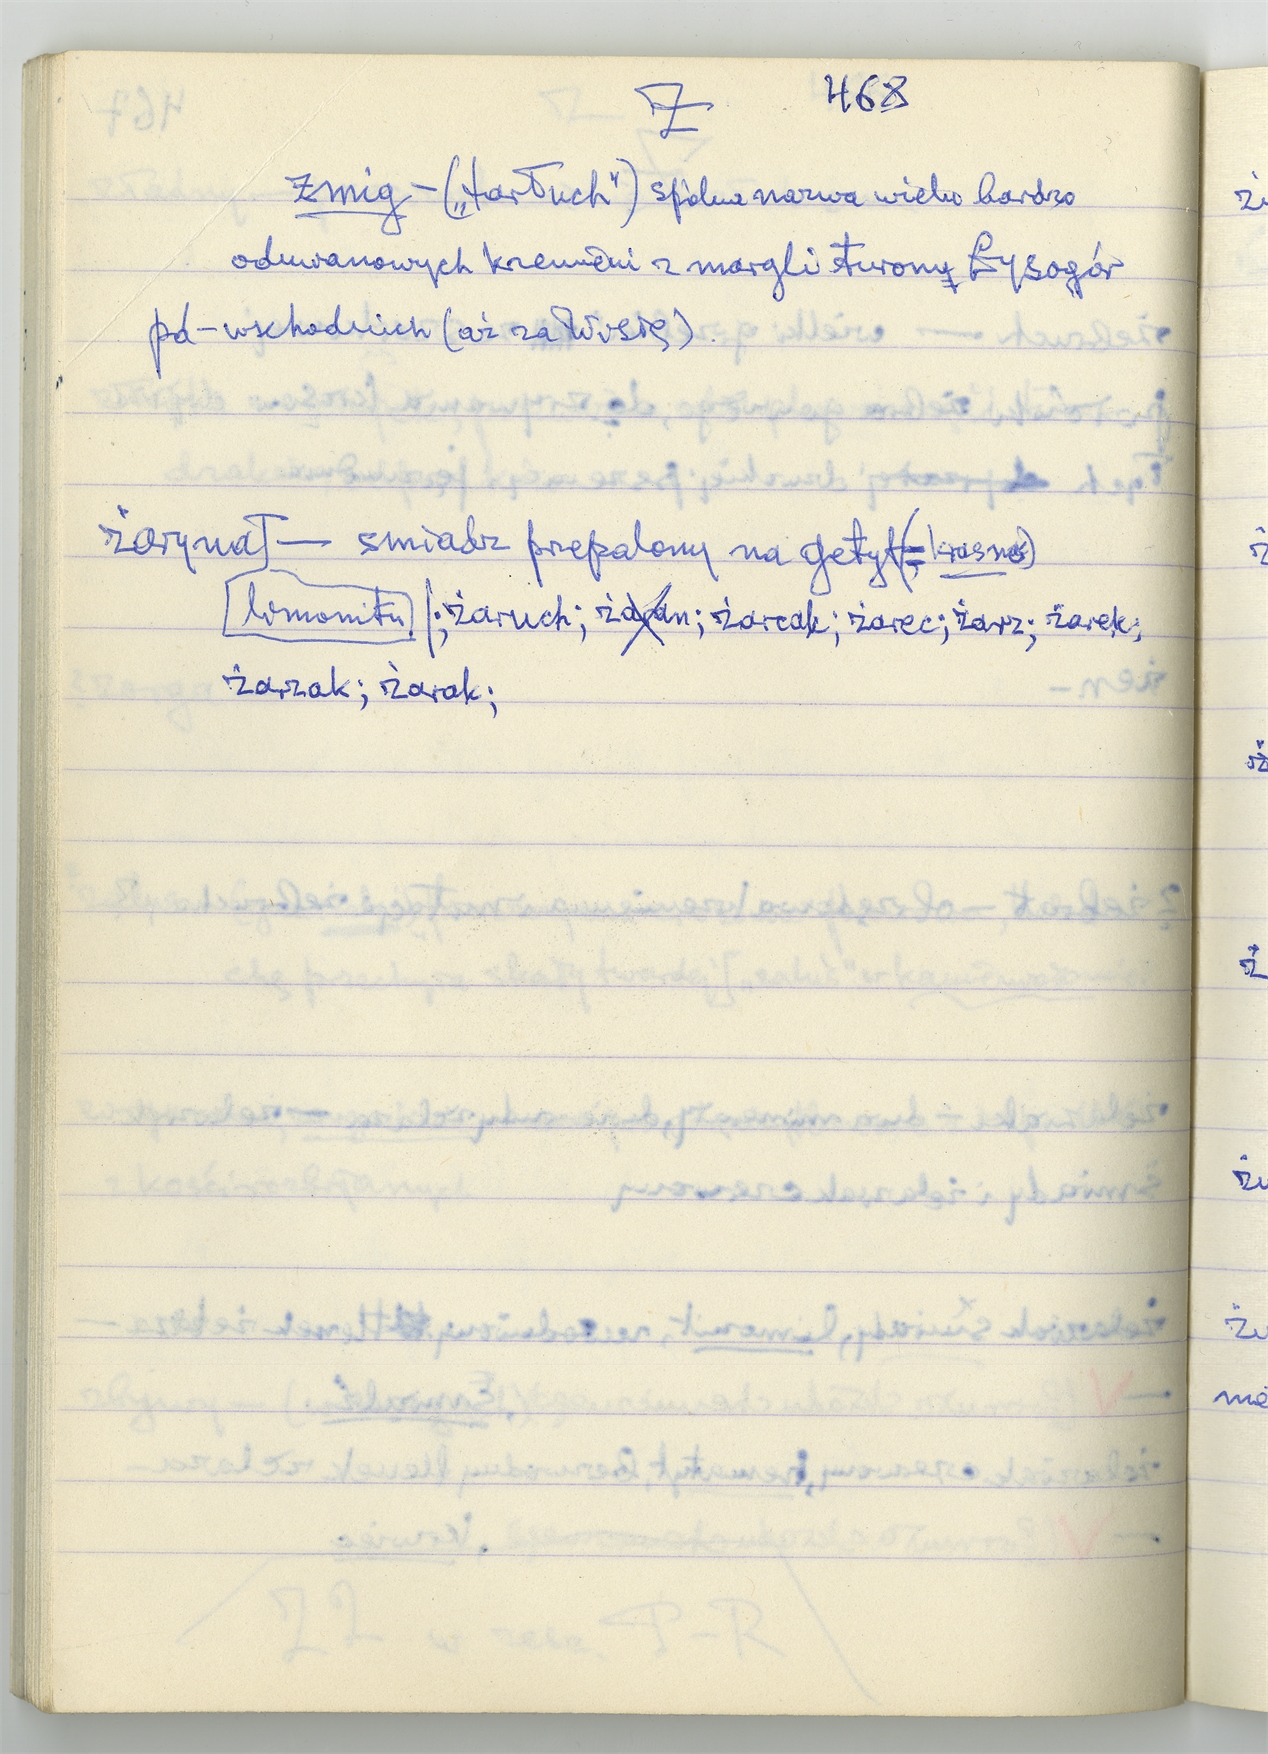 Z 468
zmig – („tartuch") spólna nazwa wielu bardzo
odmianowych krzemieni z margli turonu Łysogór
pd-wschodnich (aż za Wisłę)
żarynat — smiadz przepalony na getyt (= krasnes)
limonitu; żaruch; żaran; żarcak; żarec; żarz; żarek;
żarzak; żarak;